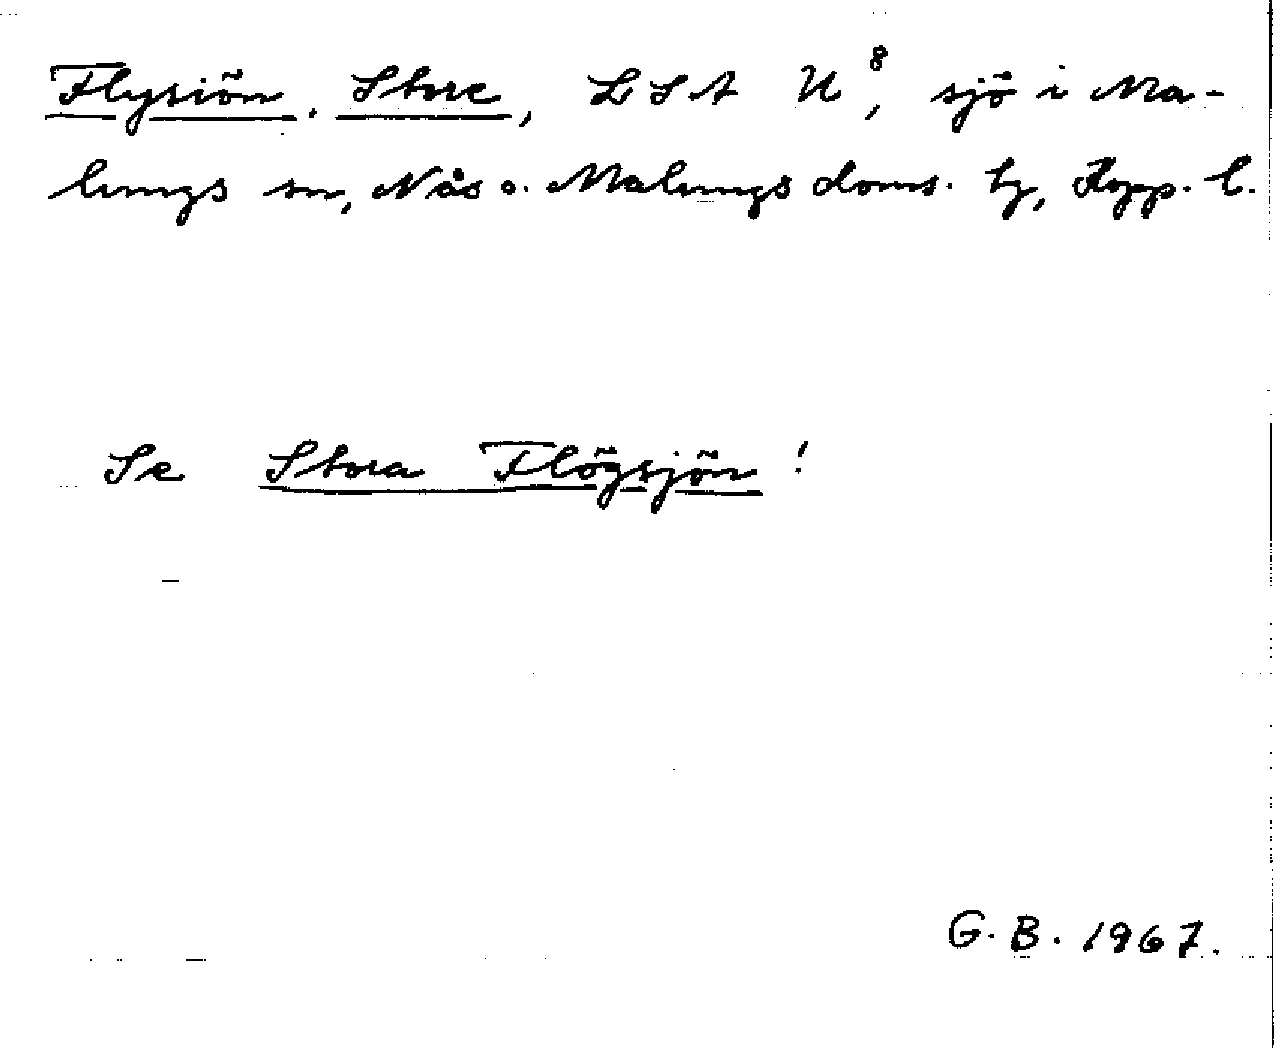 Flysiön. Store, LSA U⁸, sjö i Ma-
lungs sn, Nås o. Malungs doms. hj, Kopp. l.
Se Stora Flögsjön!
G. B. 1967.